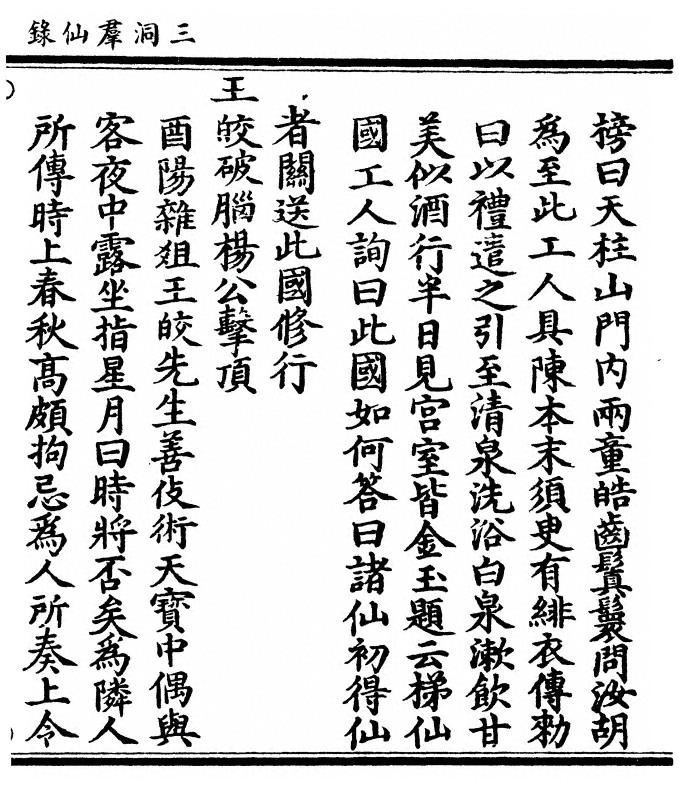 三洞羣仙錄
榜曰天柱山門內兩童皓齒鬒鬟問汝胡
為至此工人具陳本末須臾有緋衣傳勑
曰以禮遣之引至清泉洗浴白泉漱飲甘
美似酒行半日見宮室皆金玉題云梯仙
國工人詢曰此國如何答曰諸仙初得仙
者關送此國修行
王皎破腦楊公擊頂
酉陽雜俎王皎先生善伎術天寶中偶與
客夜中露坐指星月曰時將否矣為隣人
所傳時上春秋高頗拘忌爲人所奏上令